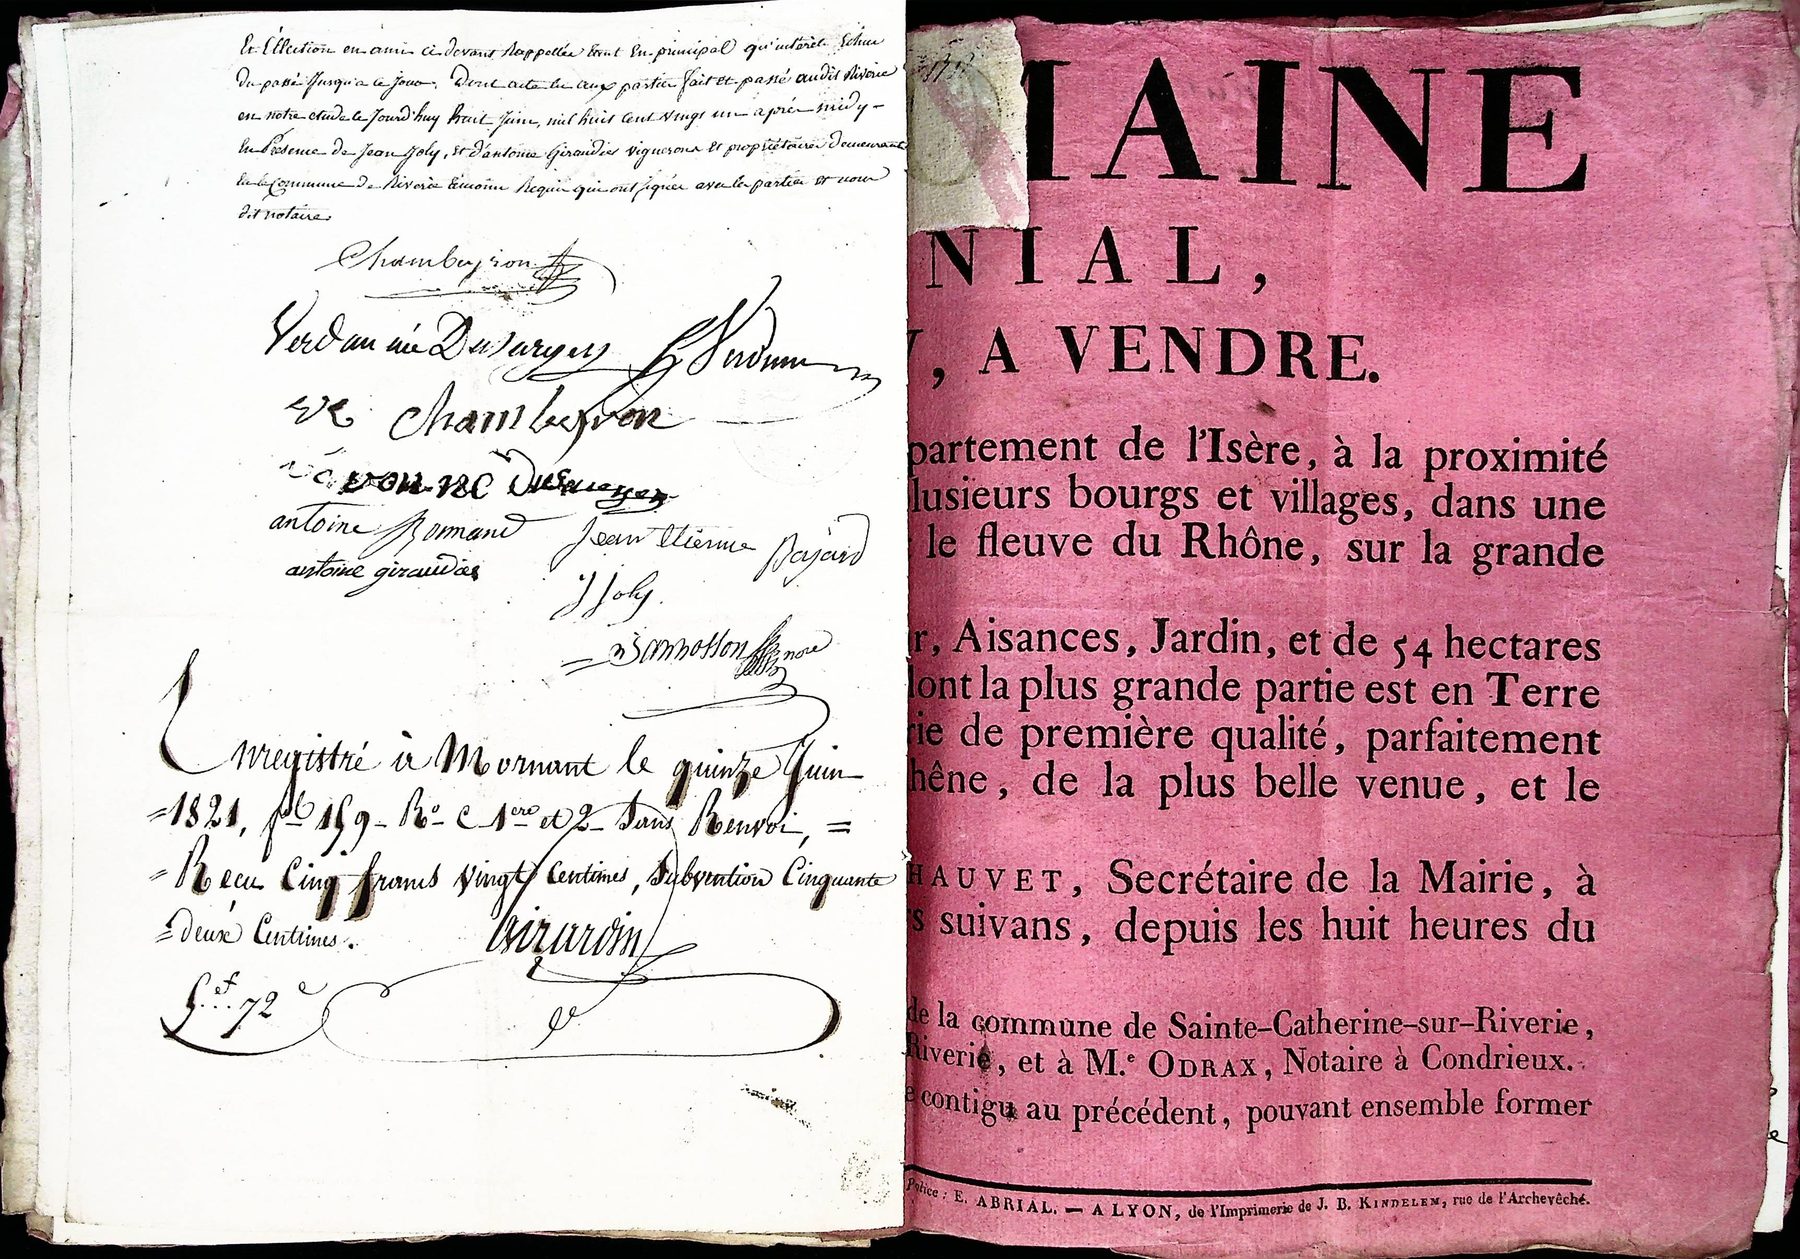 Et l'Election en ami ci devant Rappellée tant En principal qu'intérêt Echu
du passé Jusqu'a ce jour. Dont acte lu aux partie fait et passé audit Riverie
en notre etude le Jourd'huy huit Juin, mil huit cent vingt un après midy -
En Présence de Jean Joly, et d'antoine Giraudier vignerons et propriétaires demeurant
En la Commune de Riverie témoins Requis qui ont signée avec les partier et nous
dit notaire.
Chambeyron
Verdun née Dusurgey Verdun
ve Chambeyron
Dusurgey
antoine Romand Jean Etienne Bajard
antoine giraudier
J Joly
nore
Enregistré à Mornant le quinze Juin
=1821, fol 159 - Ro C 1ere et 2 - Sans Renvoi, =
= Recu Cinq francs vingt Centimes, Subvention Cinquante
= deux Centimes. Girardin
5 ef 72 c
MAINE
NIAL,
, A VENDRE.
partement de l'Isère, à la proximité
lusieurs bourgs et villages, dans une
le fleuve du Rhône, sur la grande
r, Aisances, Jardin, et de 54 hectares
dont la plus grande partie est en Terre
rie de première qualité, parfaitement
hêne, de la plus belle venue, et le
HAUVET, Secrétaire de la Mairie, à
s suivans, depuis les huit heures du
de la commune de Sainte-Catherine-sur-Riverie,
Riverie, et à M.e ODRAX, Notaire à Condrieux.
e contigu au précédent, pouvant ensemble former
Police : E. ABRIAL. — A LYON, de l'Imprimerie de J. B. KINDELEM, rue de l'Archevêché.